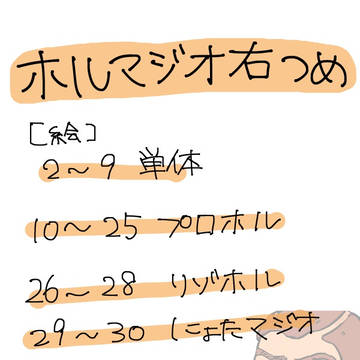 ホルマジオ右つめ
[絵]
2～9 単体
10～25 プロホル
26～28 リゾホル
29～30 にょたマジオ